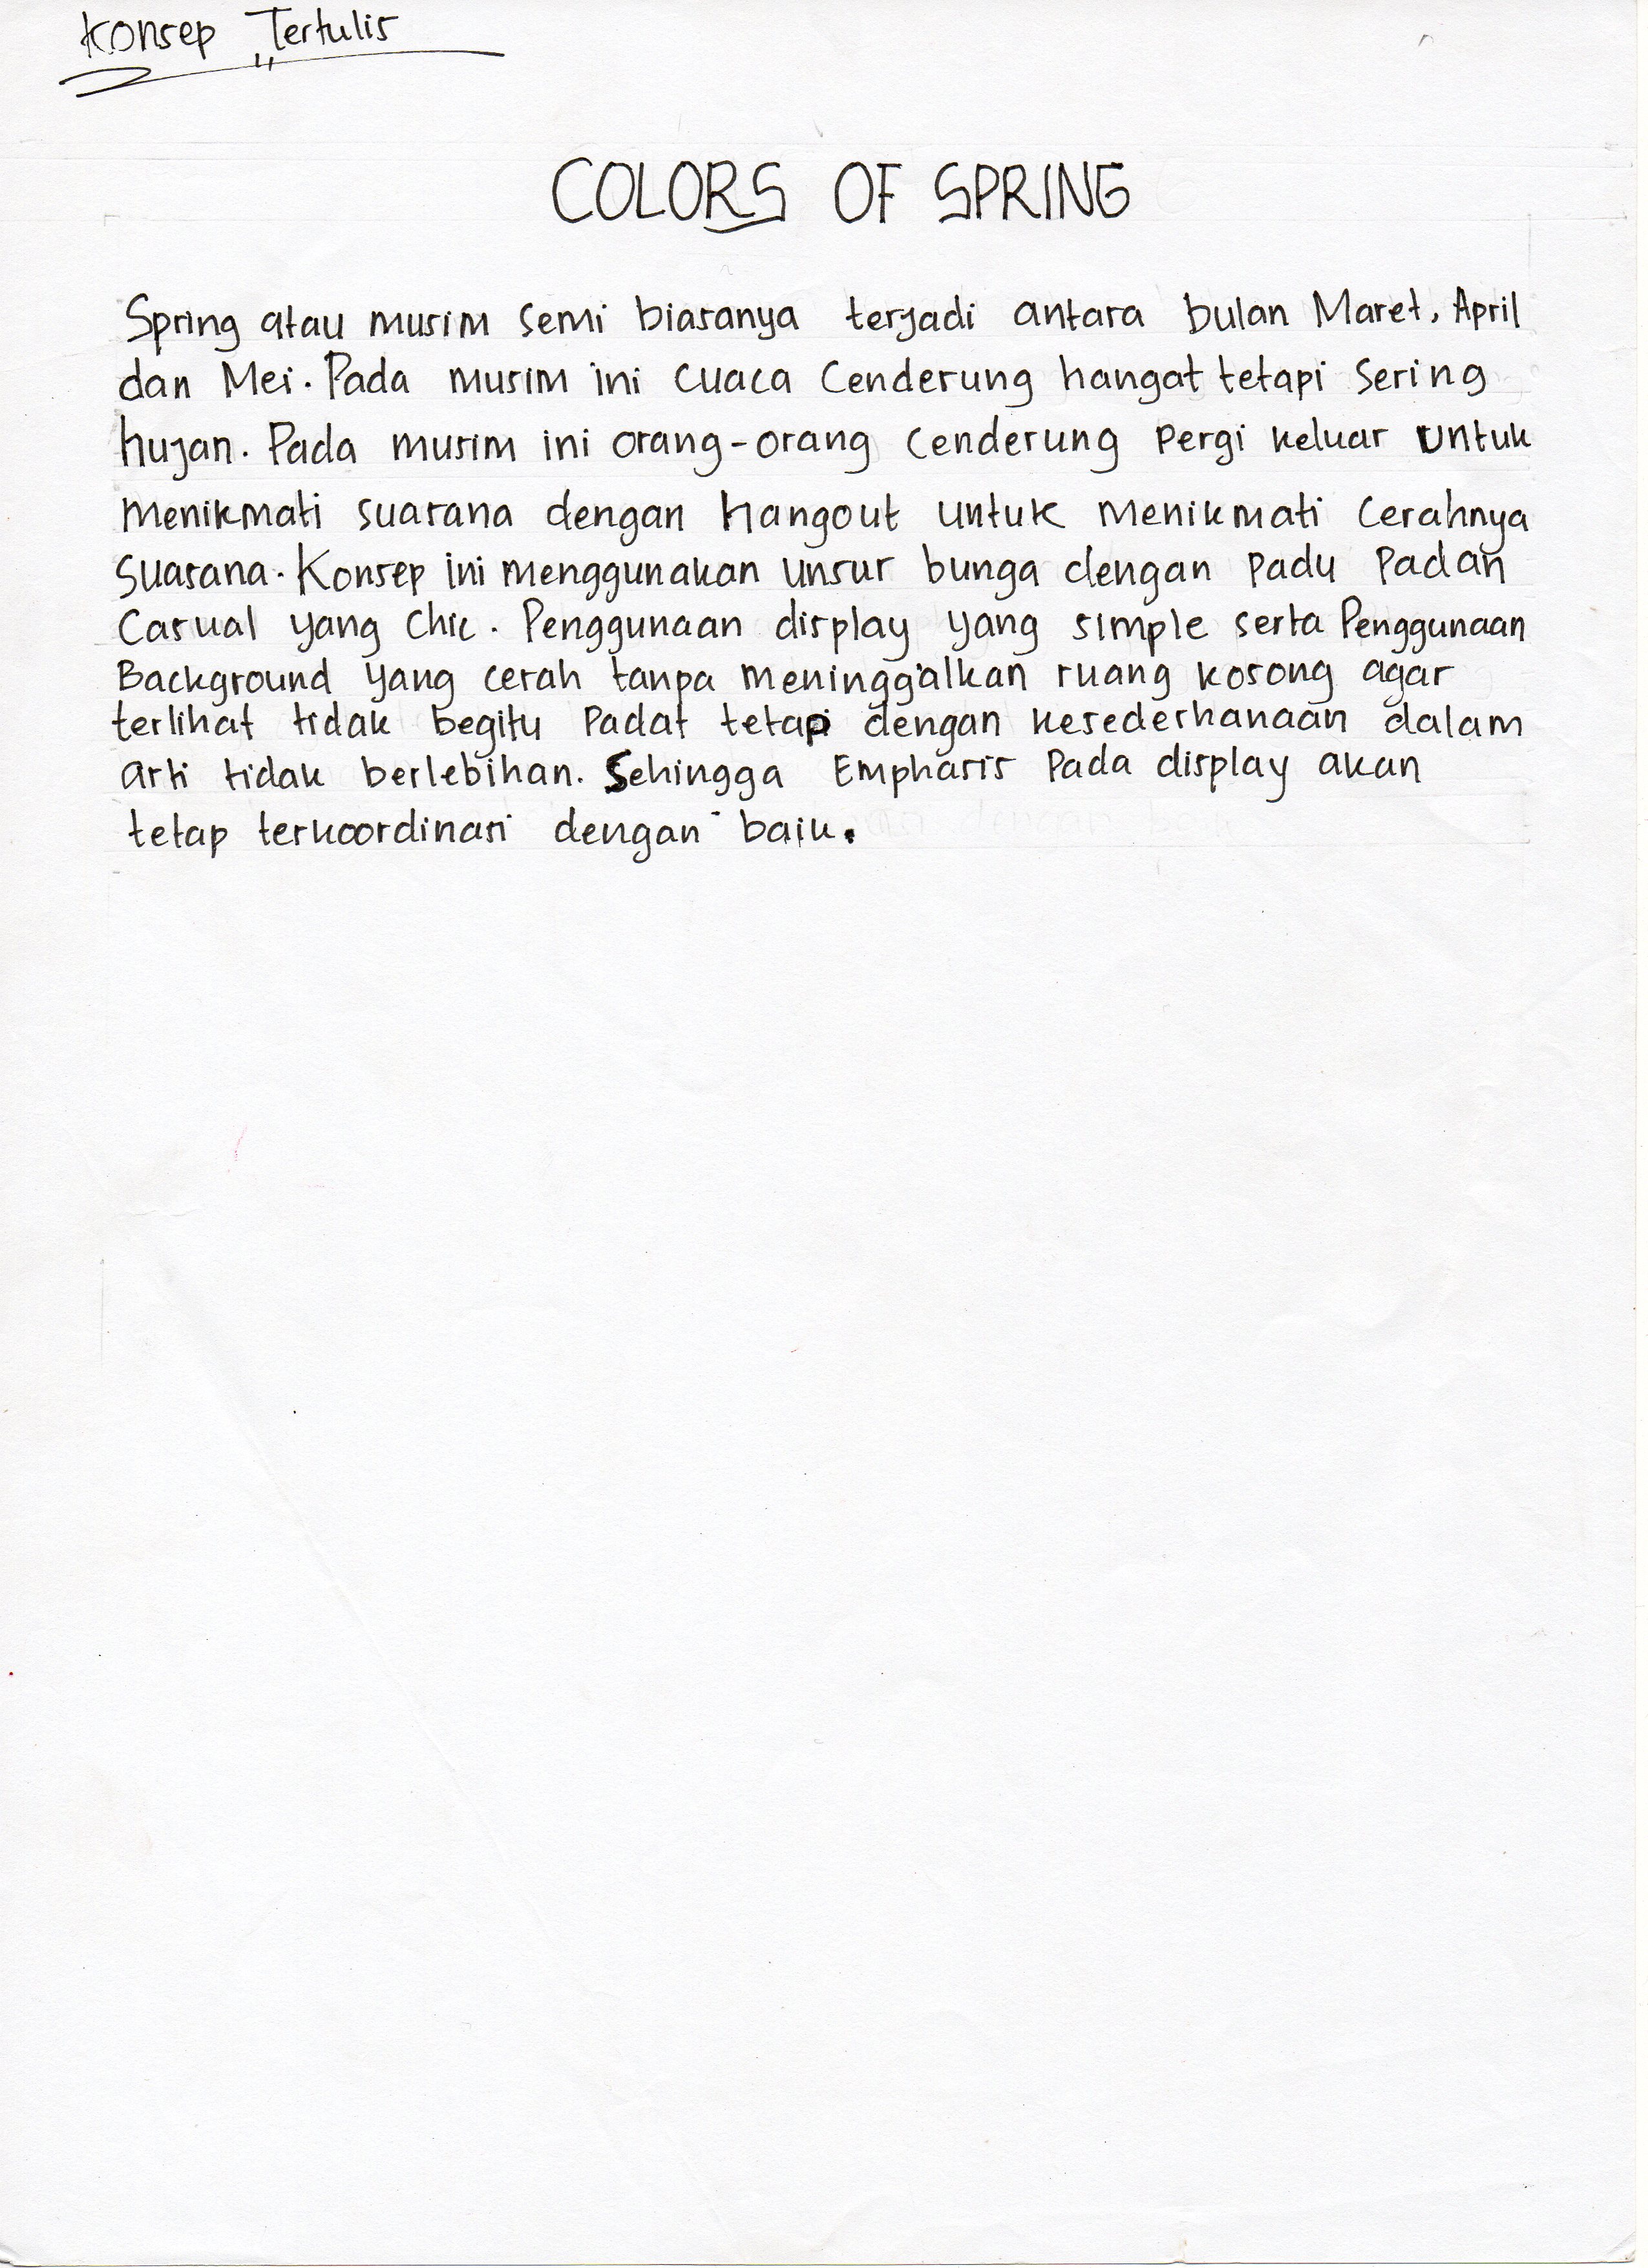 Konsep Tertulis
COLORS OF SPRING
Spring atau musim semi biasanya terjadi antara bulan Maret, April
dan Mei. Pada musim ini cuaca Cenderung hangat tetapi Sering
hujan. Pada musim ini orang-orang Cenderung Pergi keluar Untuk
Menikmati suasana dengan Hangout Untuk Menikmati Cerahnya
Suasana. Konsep ini menggunakan Unsur bunga dengan Padu Padan
Casual yang Chic. Penggunaan display yang simple serta Penggunaan
Background yang cerah tanpa meninggalkan ruang kosong agar
terlihat tidak begitu Padat tetapi dengan kesederhanaan dalam
arti tidak berlebihan. Sehingga Emphasis Pada display akan
tetap terkoordinasi dengan baik.